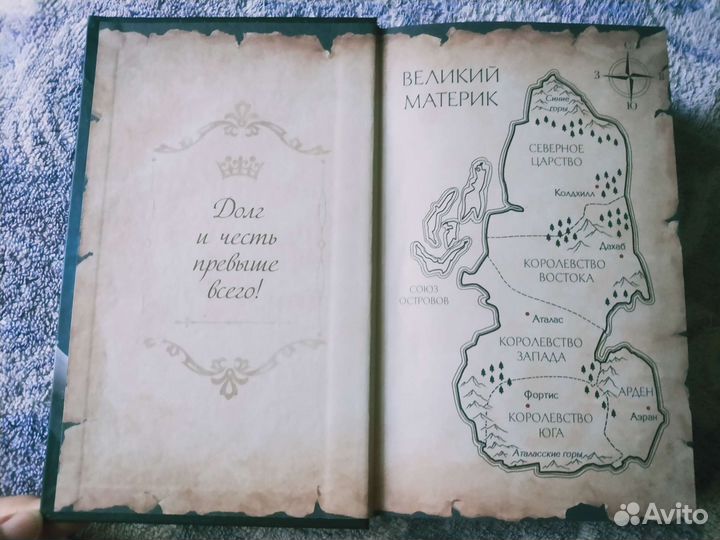 Долг
и честь
превыше
всего!
ВЕЛИКИЙ
МАТЕРИК
С
З
В
Ю
Синие
горы
СЕВЕРНОЕ
ЦАРСТВО
Колдхилл
Дахаб
КОРОЛЕВСТВО
ВОСТОКА
СОЮЗ
ОСТРОВОВ
Аталас
КОРОЛЕВСТВО
ЗАПАДА
Фортис
АРДЕН
Аэран
КОРОЛЕВСТВО
ЮГА
Аталасские горы
Avito